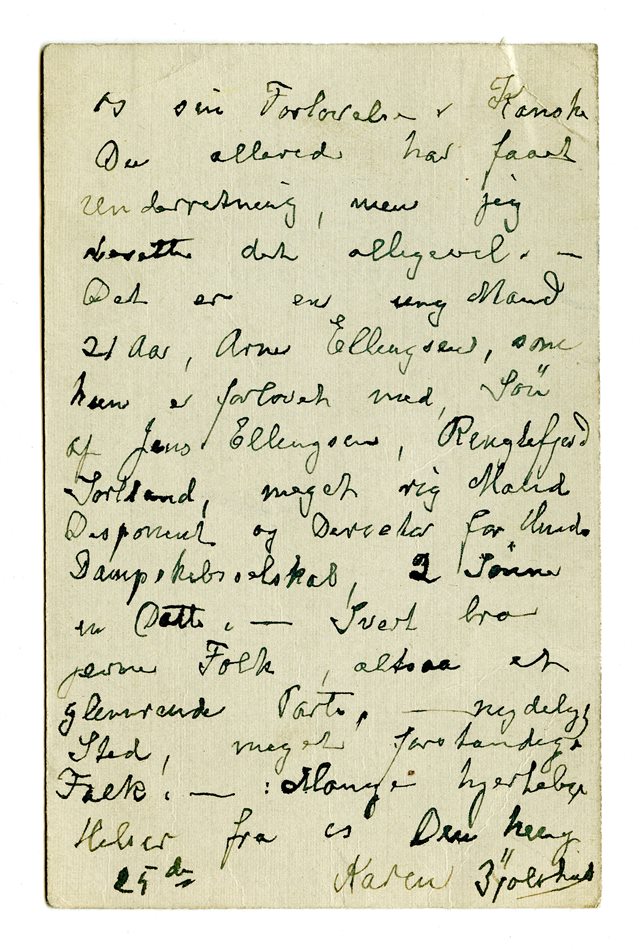 os sin Forlovelse. Kanske
De allerede har faaet
Underretning, men jeg
beretter det allegevel. —
Det er en ung Mand
21 Aar, Arne Ellingsen, som
hun er forlovet med, Sön
af Jens Ellingsen,
Sortland, meget rig Mand
Disponent og Director for
Dampskibsselskab, 2 Sönner
en Datter. — Svert bra
jevne Folk, altsaa et
glimrende Parti, — nydelig
Sted, meget forstandige
Folk. — : Mange hjertelige
Helser fra os Den heng
25 de Karen